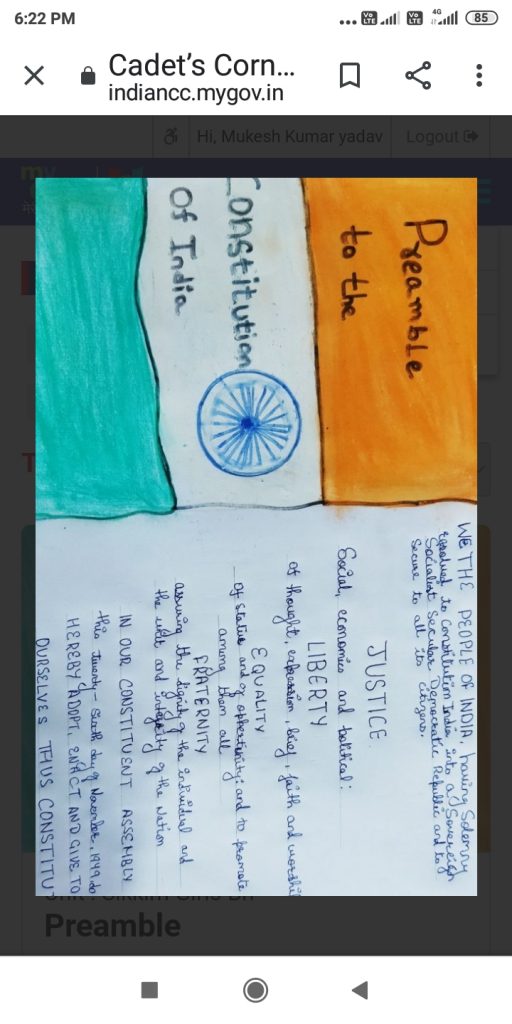 6:22 PM
4G
85
Cadet's Corn...
indiancc.mygov.in
Hi, Mukesh Kumar yadav
Logout
my
Preamble
to the
Constitution
Of India
WE THE PEOPLE OF INDIA, having Solemny
to Constitution India into a Sovereign
Socialist Secular Democratic Republic and to
Secure to all its citizens
JUSTICE.
Social, economics and political:
LIBERTY
of thought, expression, blief, faith and worship
EQUALITY
of status and of opportunity and to promote
among them all
FRATERNITY
assuring the dignity of the individual and
the and integrity of the Nation
IN OUR CONSTITUENT ASSEMBLY
this twenty-Sixth day of November, 1949, do
HEREBY ADOPT, ENACT AND GIVE TO
OURSELVES THUS CONSTITU
Preamble